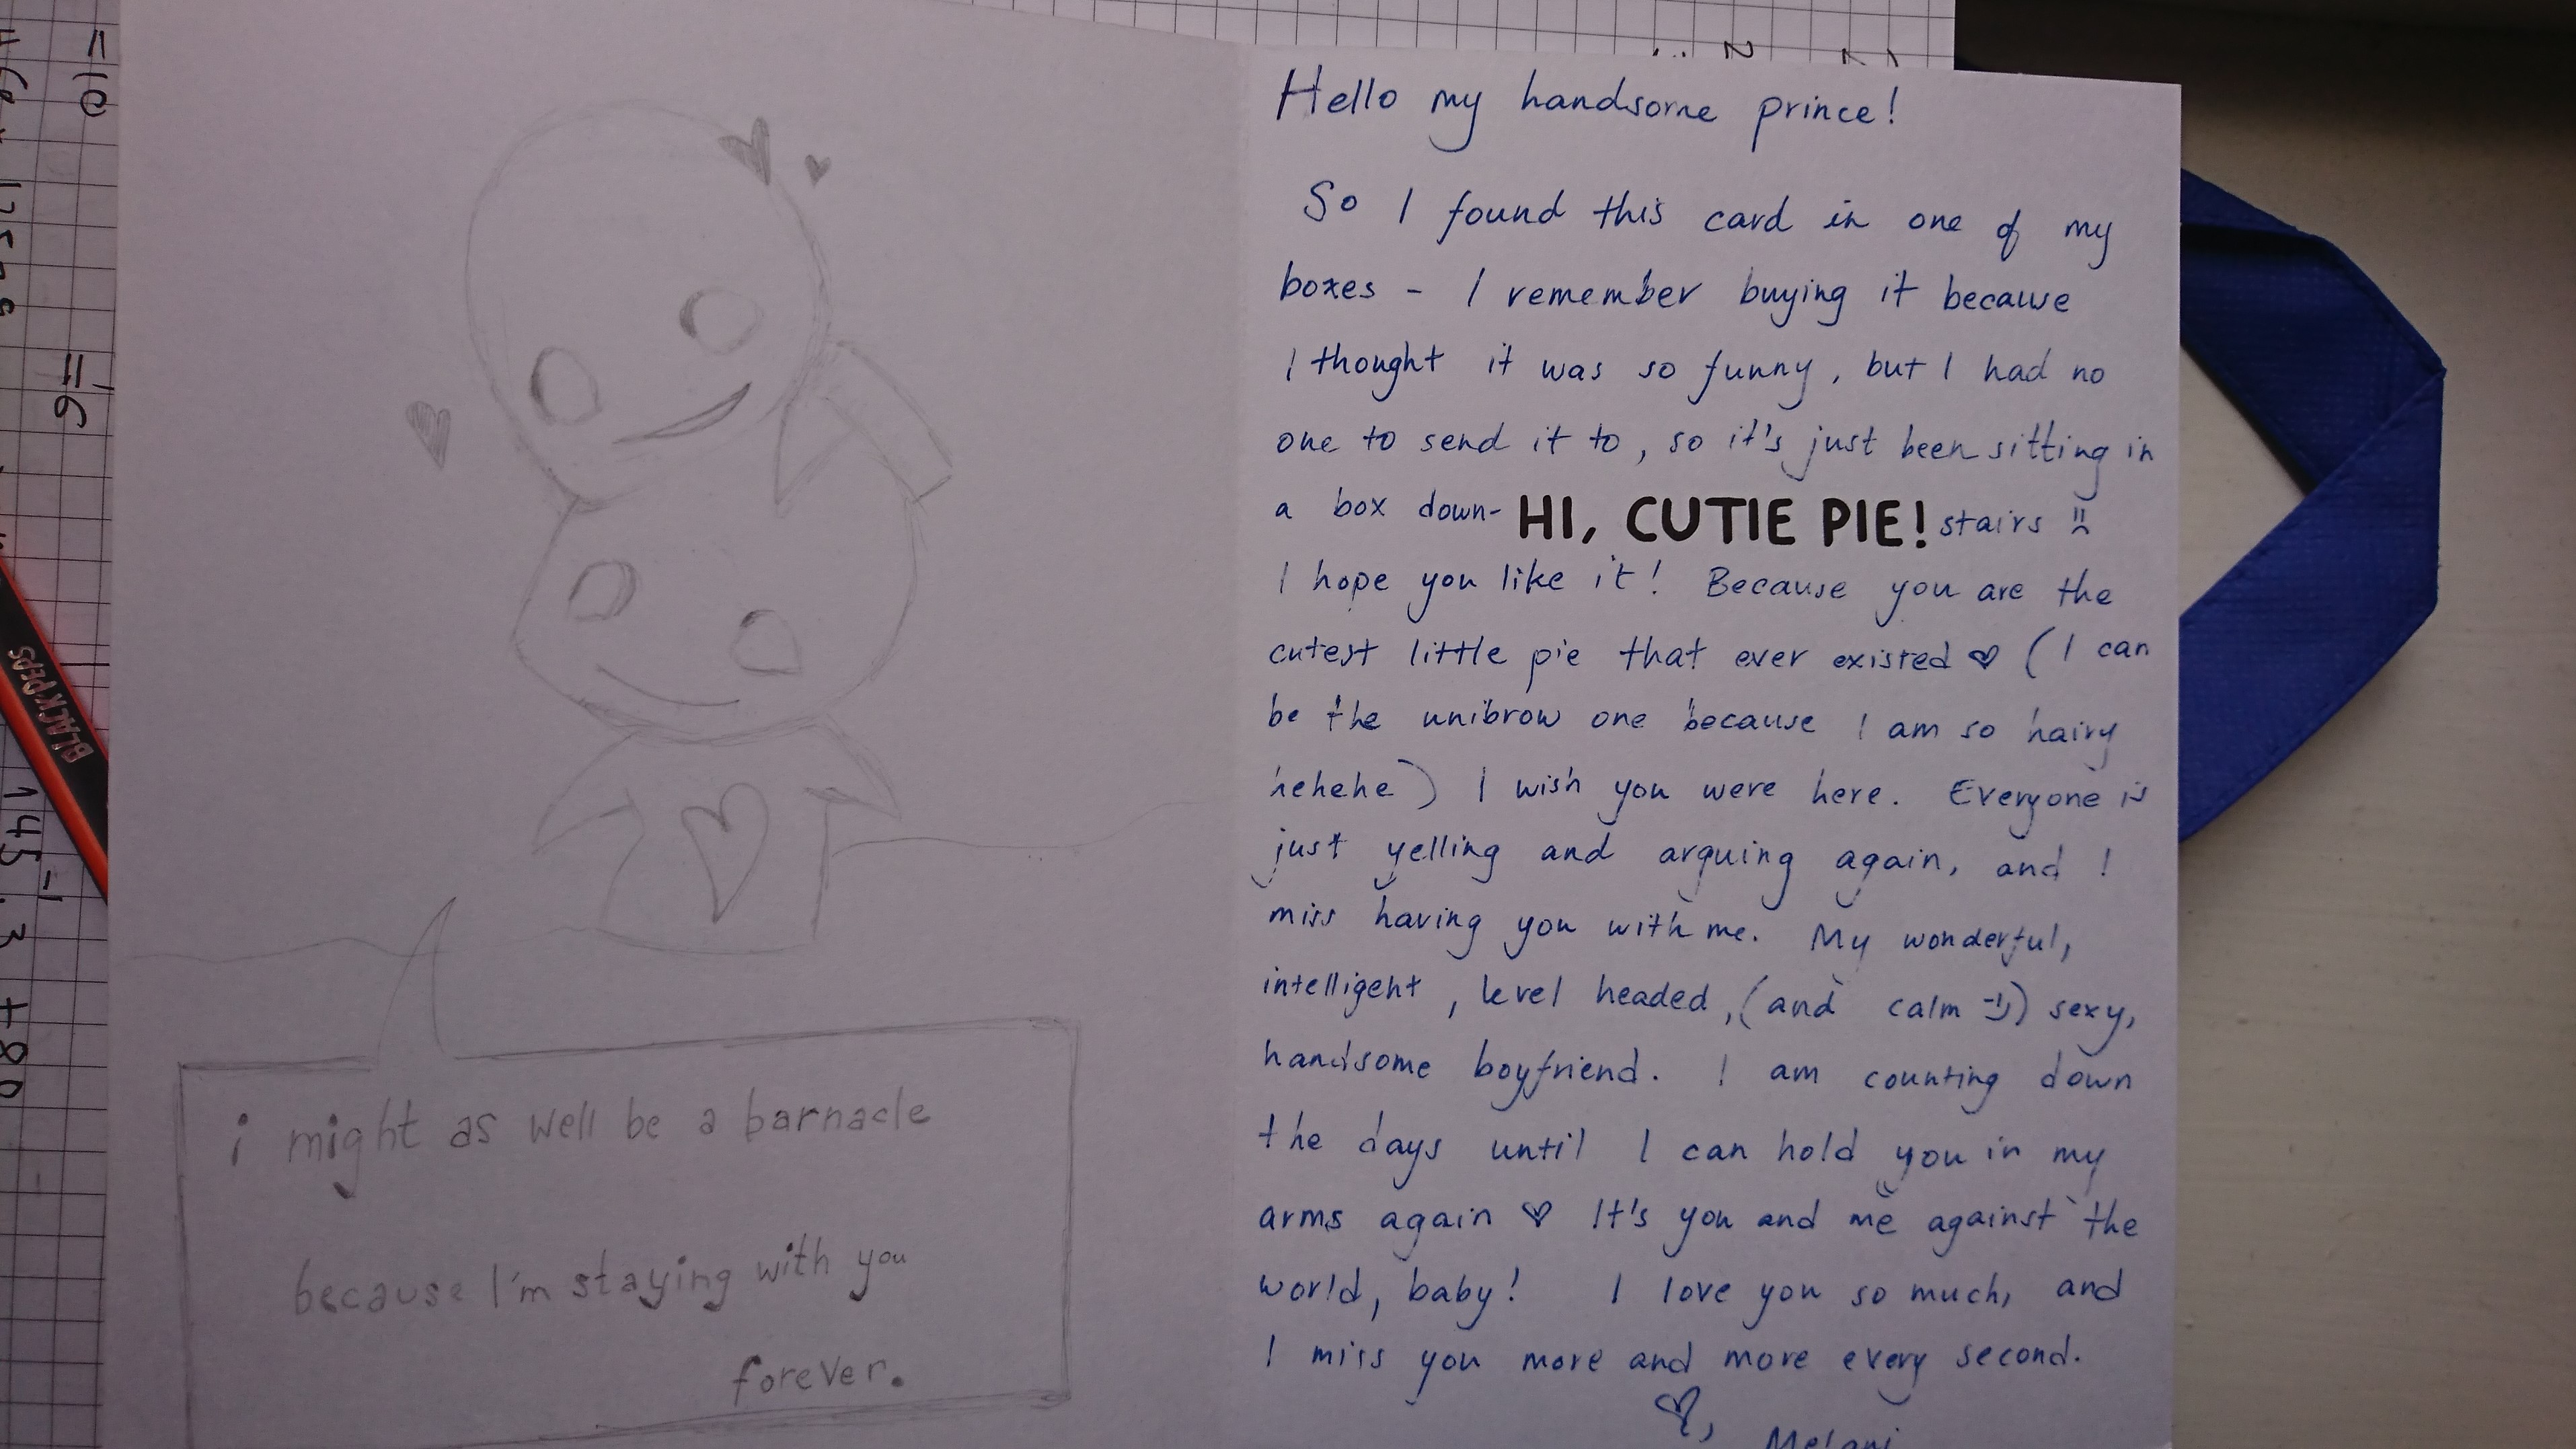 i might as well be a barnacle
because I'm staying with you
forever.
Hello my handsome prince!
So I found this card in one of my
boxes - I remember buying it because
I thought it was so funny, but I had no
one to send it to, so it's just been sitting in
a box down- HI, CUTIE PIE! stairs
I hope you like it! Because you are the
cutest little pie that ever existed ♡ (I can
be the unibrow one because I am so hairy
hehehe) I wish you were here. Everyone is
just yelling and arguing again, and I
miss having you with me. My wonderful,
intelligent, level headed, (and calm =)) sexy,
handsome boyfriend. I am counting down
the days until I can hold you in my
arms again ♡ It's you and me against the
world, baby! I love you so much, and
I miss you more and more every second.
♡, Melani
BLACK'PEPS
=10
=6
145 - 3 + 80